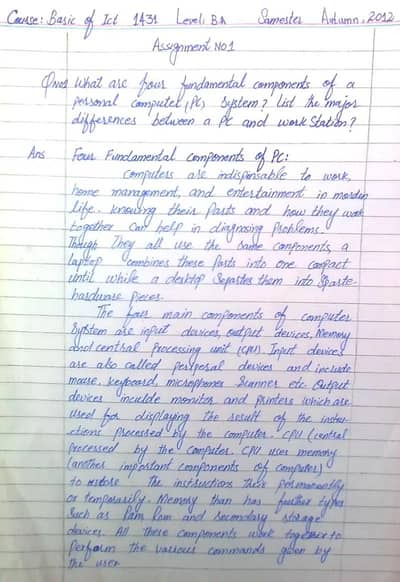 Course: Basic of Ict 1431 Level: B.A Semester Autumn, 2012
Assignment No1
Qno1 What are four fundamental components of a
personal computer (PC) System? List the major
differences between a PC and work Station?
Ans Four Fundamental components of PC:
Computers are indispensable to work,
home management, and entertainment in morden
life. knowing their Parts and how they work
together can help in diagnosing Problems.
Though They all use the same conponents, a
laptop combines these Parts into one compact
until while a desktop Separates them into
hardware pieces.
The four main components of computer
System are input devices, output devices, Memory
and central Processing unit (CPU) Input devices
are also called perposal devices and include
mouse, keyboard, microphones Scanner etc Output
devices inculde monitor and printers which are
used for displaying the result of the instru-
ctions processed by the computer. CPU (central
processed by the computer. CPU uses memory
(another important components of computer)
to restore the instructions then permanently
or temporarily. Memory than has further types
Such as Ram Rom and Secondary storage
devices. All these components work together to
perform the various commands given by
the user